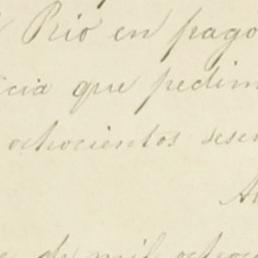 Rio en pago
cia que pedim
ochocientos sesen
de mil ochoc